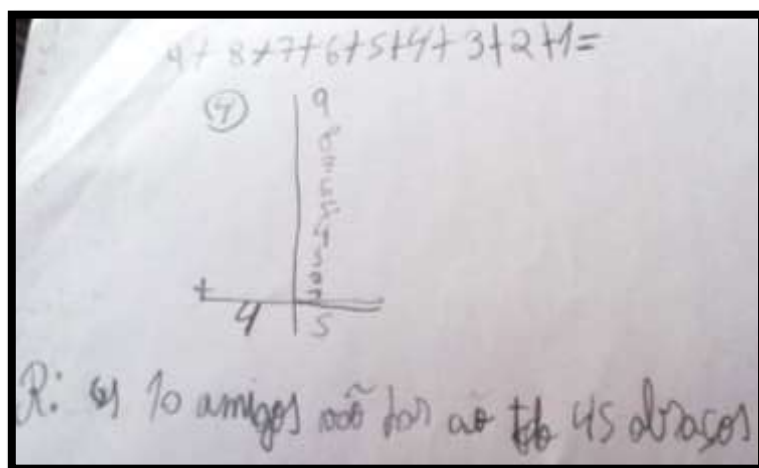 9+8+7+6+5+4+3+2+1=
4
9
8
7
6
5
4
3
2
1
+
4 5
R: os 10 amigos vão dar ao todo 45 abraços